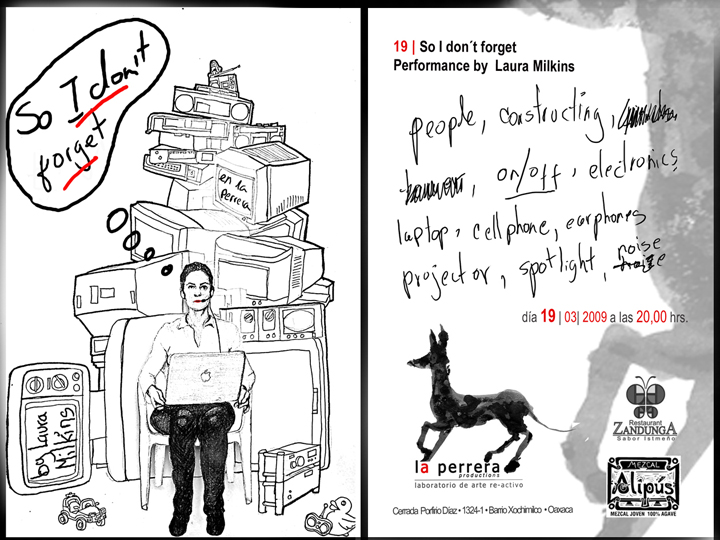 So I don't
forget
en la
perrera
By Laura
Milkins
19 | So I don´t forget
Performance by Laura Milkins
people, constructing,
on/off, electronics
laptop, cellphone, earphones
noise
projector, spotlight,
día 19 | 03| 2009 a las 20,00 hrs.
la perrera
productions
laboratorio de arte re-activo
Restaurant
ZANDUNGA
Sabor Istmeño
MEZCAL
Alipús
MEZCAL JOVEN 100% AGAVE
Cerrada Porfirio Díaz • 1324-1 • Barrio Xochimilco • Oaxaca